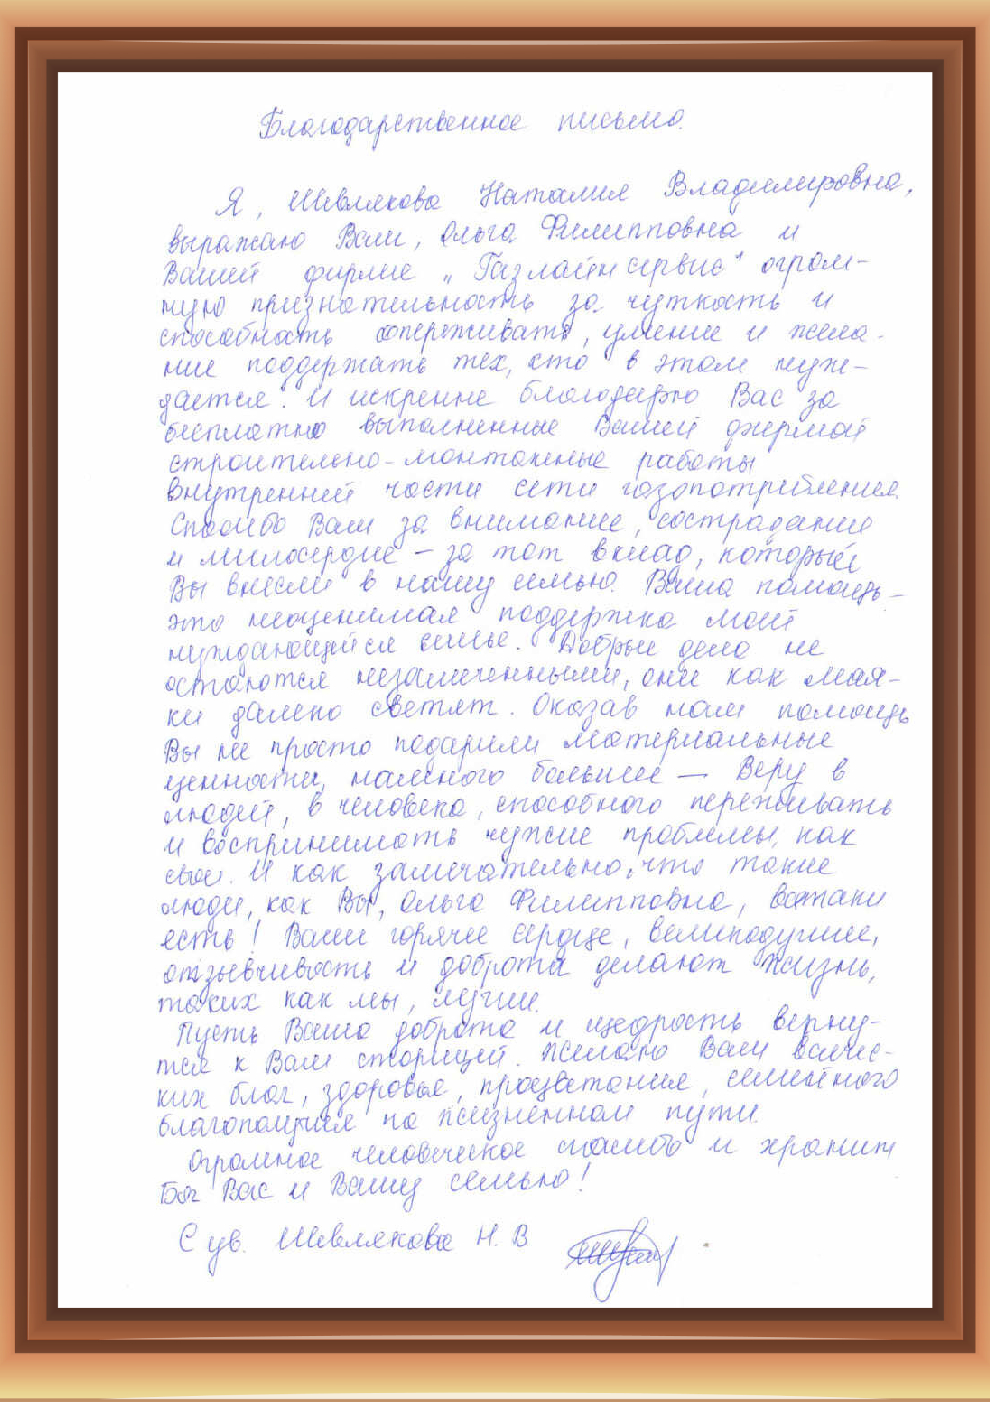 Благодарственное письмо.
Я, Шевлякова Наталия Владимировна,
выражаю Вам, Ольга Филипповна и
Вашей фирме „Газлайнсервис" огром-
ную признательность за чуткость и
способность сопереживать, умение и жела-
ние поддержать тех, кто в этом нуж-
дается. И искренне благодарю Вас за
бесплатно выполненные Вашей фирмой
строительно-монтажные работы
внутренней части сети газопотребления.
Спасибо Вам за внимание, сострадание
и милосердие – за тот вклад, который
Вы внесли в нашу семью. Ваша помощь –
это неоценимая поддержка моей
нуждающейся семье. Добрые дела не
остаются незамеченными, они как мая-
ки далеко светят. Оказав нам помощь
Вы не просто подарили материальные
ценности, намного больше — Веру в
людей, в человека, способного переживать
и воспринимать чужие проблемы, как
свои. И как замечательно, что такие
люди, как Вы, Ольга Филипповна, всетаки
есть! Ваши горячее сердце, великодушие,
отзывчивость и доброта делают жизнь,
таких как мы, лучше.
Пусть Ваша доброта и щедрость верну-
тся к Вам сторицей. Желаю Вам всячес-
ких благ, здоровья, процветания, семейного
благополучия на жизненном пути.
Огромное человеческое спасибо и хранит
Бог Вас и Вашу семью!
С ув. Шевлякова Н. В